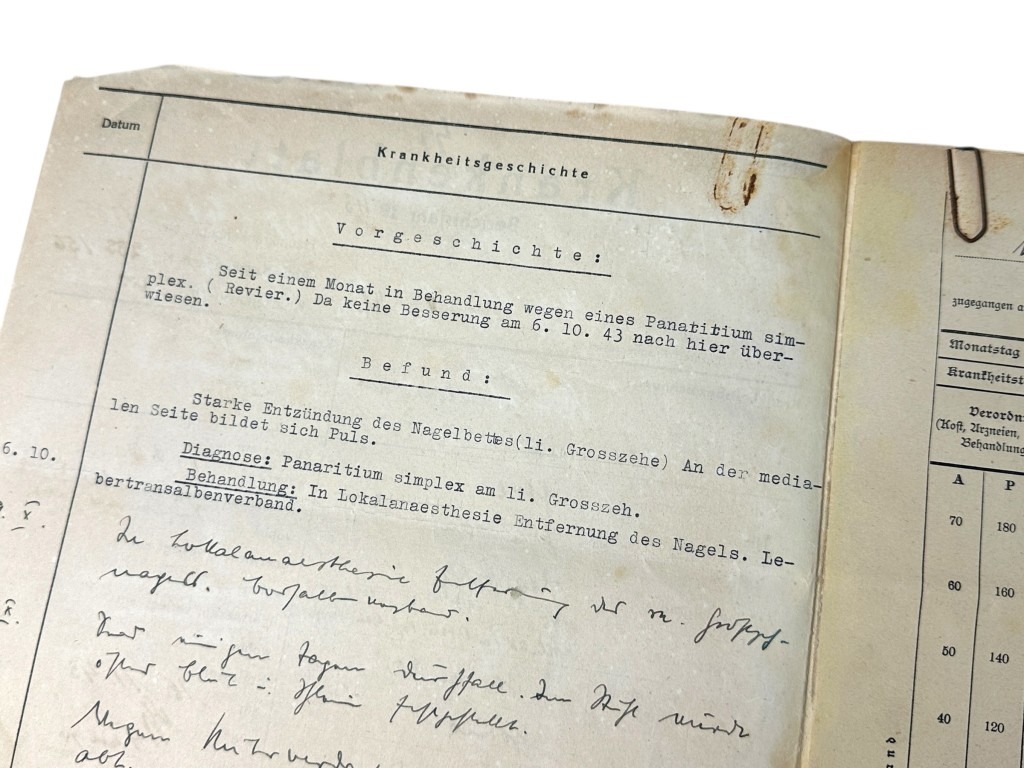 Datum
Krankheitsgeschichte
V o r g e s c h i c h t e :
Seit einem Monat in Behandlung wegen eines Panatitium sim-
plex. ( Revier.) Da keine Besserung am 6. 10. 43 nach hier über-
wiesen.
B e f u n d :
Starke Entzündung des Nagelbettes(li. Grosszehe) An der media-
len Seite bildet sich Puls.
6. 10.
Diagnose: Panaritium simplex am li. Grosszeh.
Behandlung: In Lokalanaesthesie Entfernung des Nagels. Le-
bertransalbenverband.
X.
In Lokalanaesthesie Entfernung des
nagels.
X.
Seit einigen Tagen Durchfall. Im Stuhl wurde
öfter Blut Schleim festgestellt.
Wegen
abt.
zugegangen a
Monatstag
Krankheitst
Verordn
(Kost, Arzneien,
Behandlung
A
P
70
180
60
160
50
140
40
120